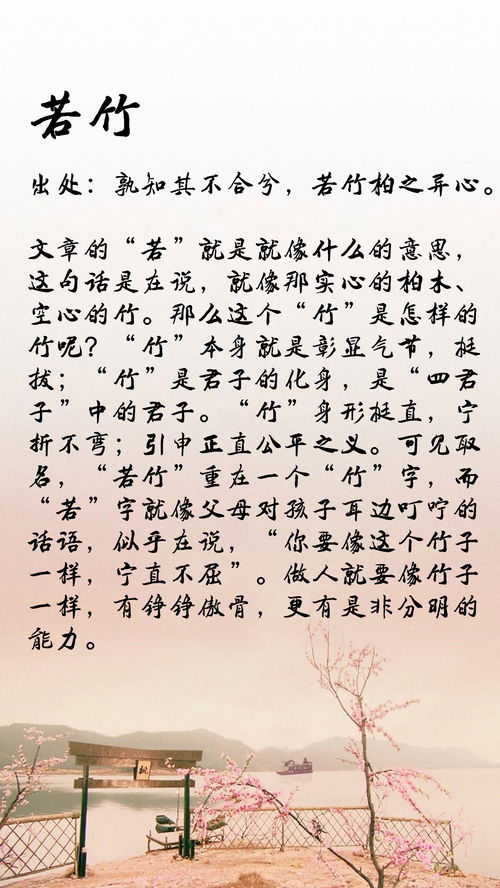 若竹
出处：孰知其不合兮，若竹柏之异心。
文章的“若”就是就像什么的意思，
这句话是在说，就像那实心的柏木、
空心的竹。那么这个“竹”是怎样的
竹呢？“竹”本身就是彰显气节，挺
拔；“竹”是君子的化身，是“四君
子”中的君子。“竹”身形挺直，宁
折不弯；引申正直公平之义。可见取
名，“若竹”重在一个“竹”字，而
“若”字就像父母对孩子耳边叮咛的
话语，似乎在说，“你要像这个竹子
一样，宁直不屈”。做人就要像竹子
一样，有铮铮傲骨，更有是非分明的
能力。